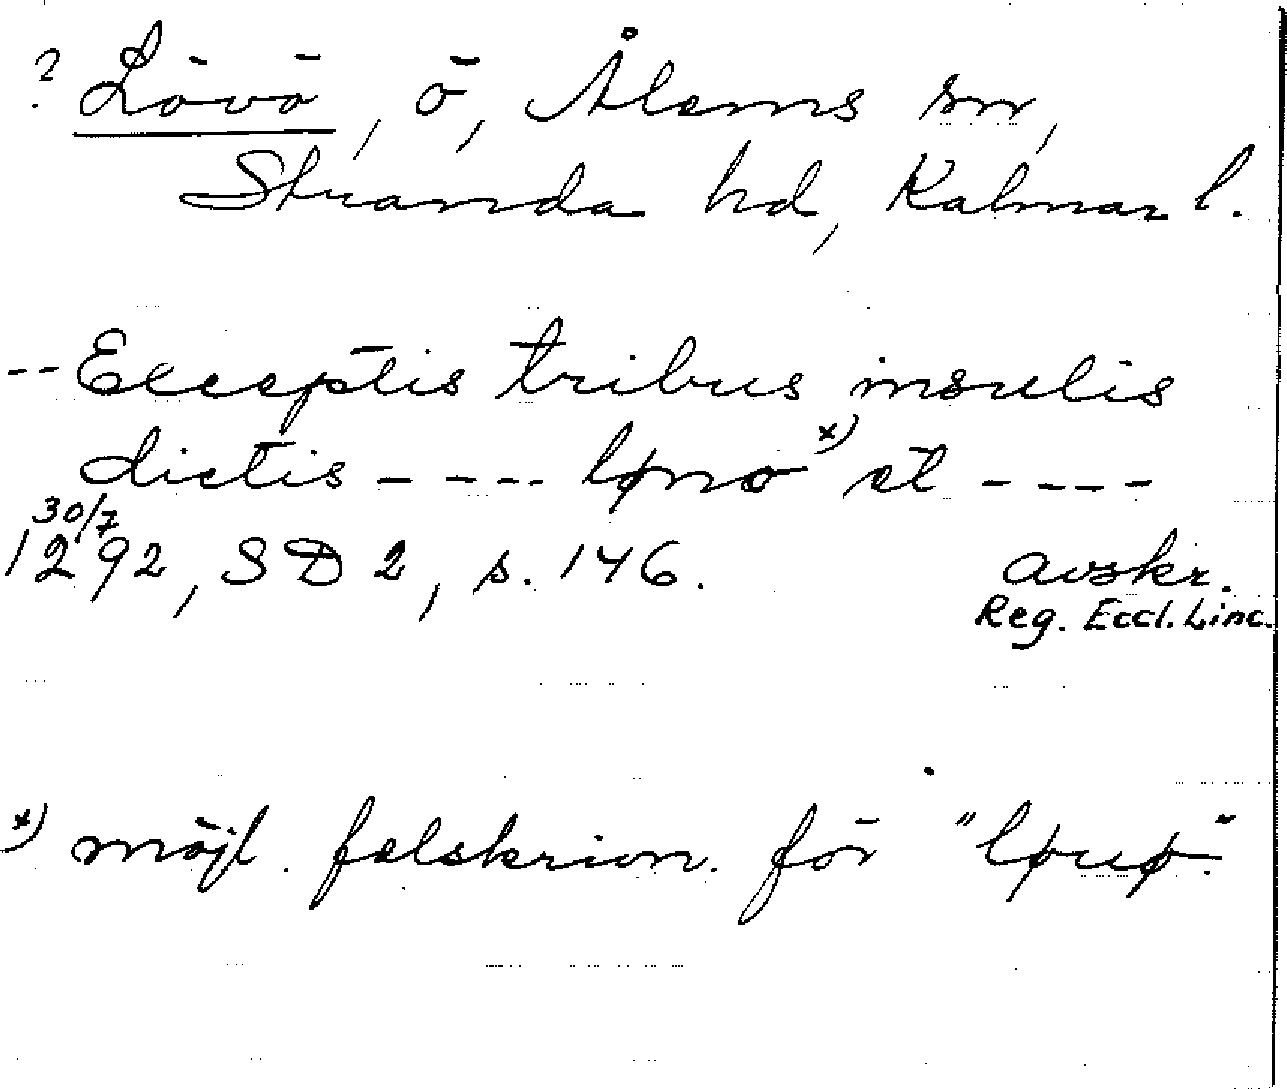 ? Lövö, ö, Ålems sn,
Stranda hd, Kalmar l.
-- Exceptis tribus insulis
dictis - - - - lønö x) et - - - -
30/7
1292, SD 2, s. 146. avskr.
Reg. Eccl. Linc.
x) möjl. felskrivn. för "løuø".